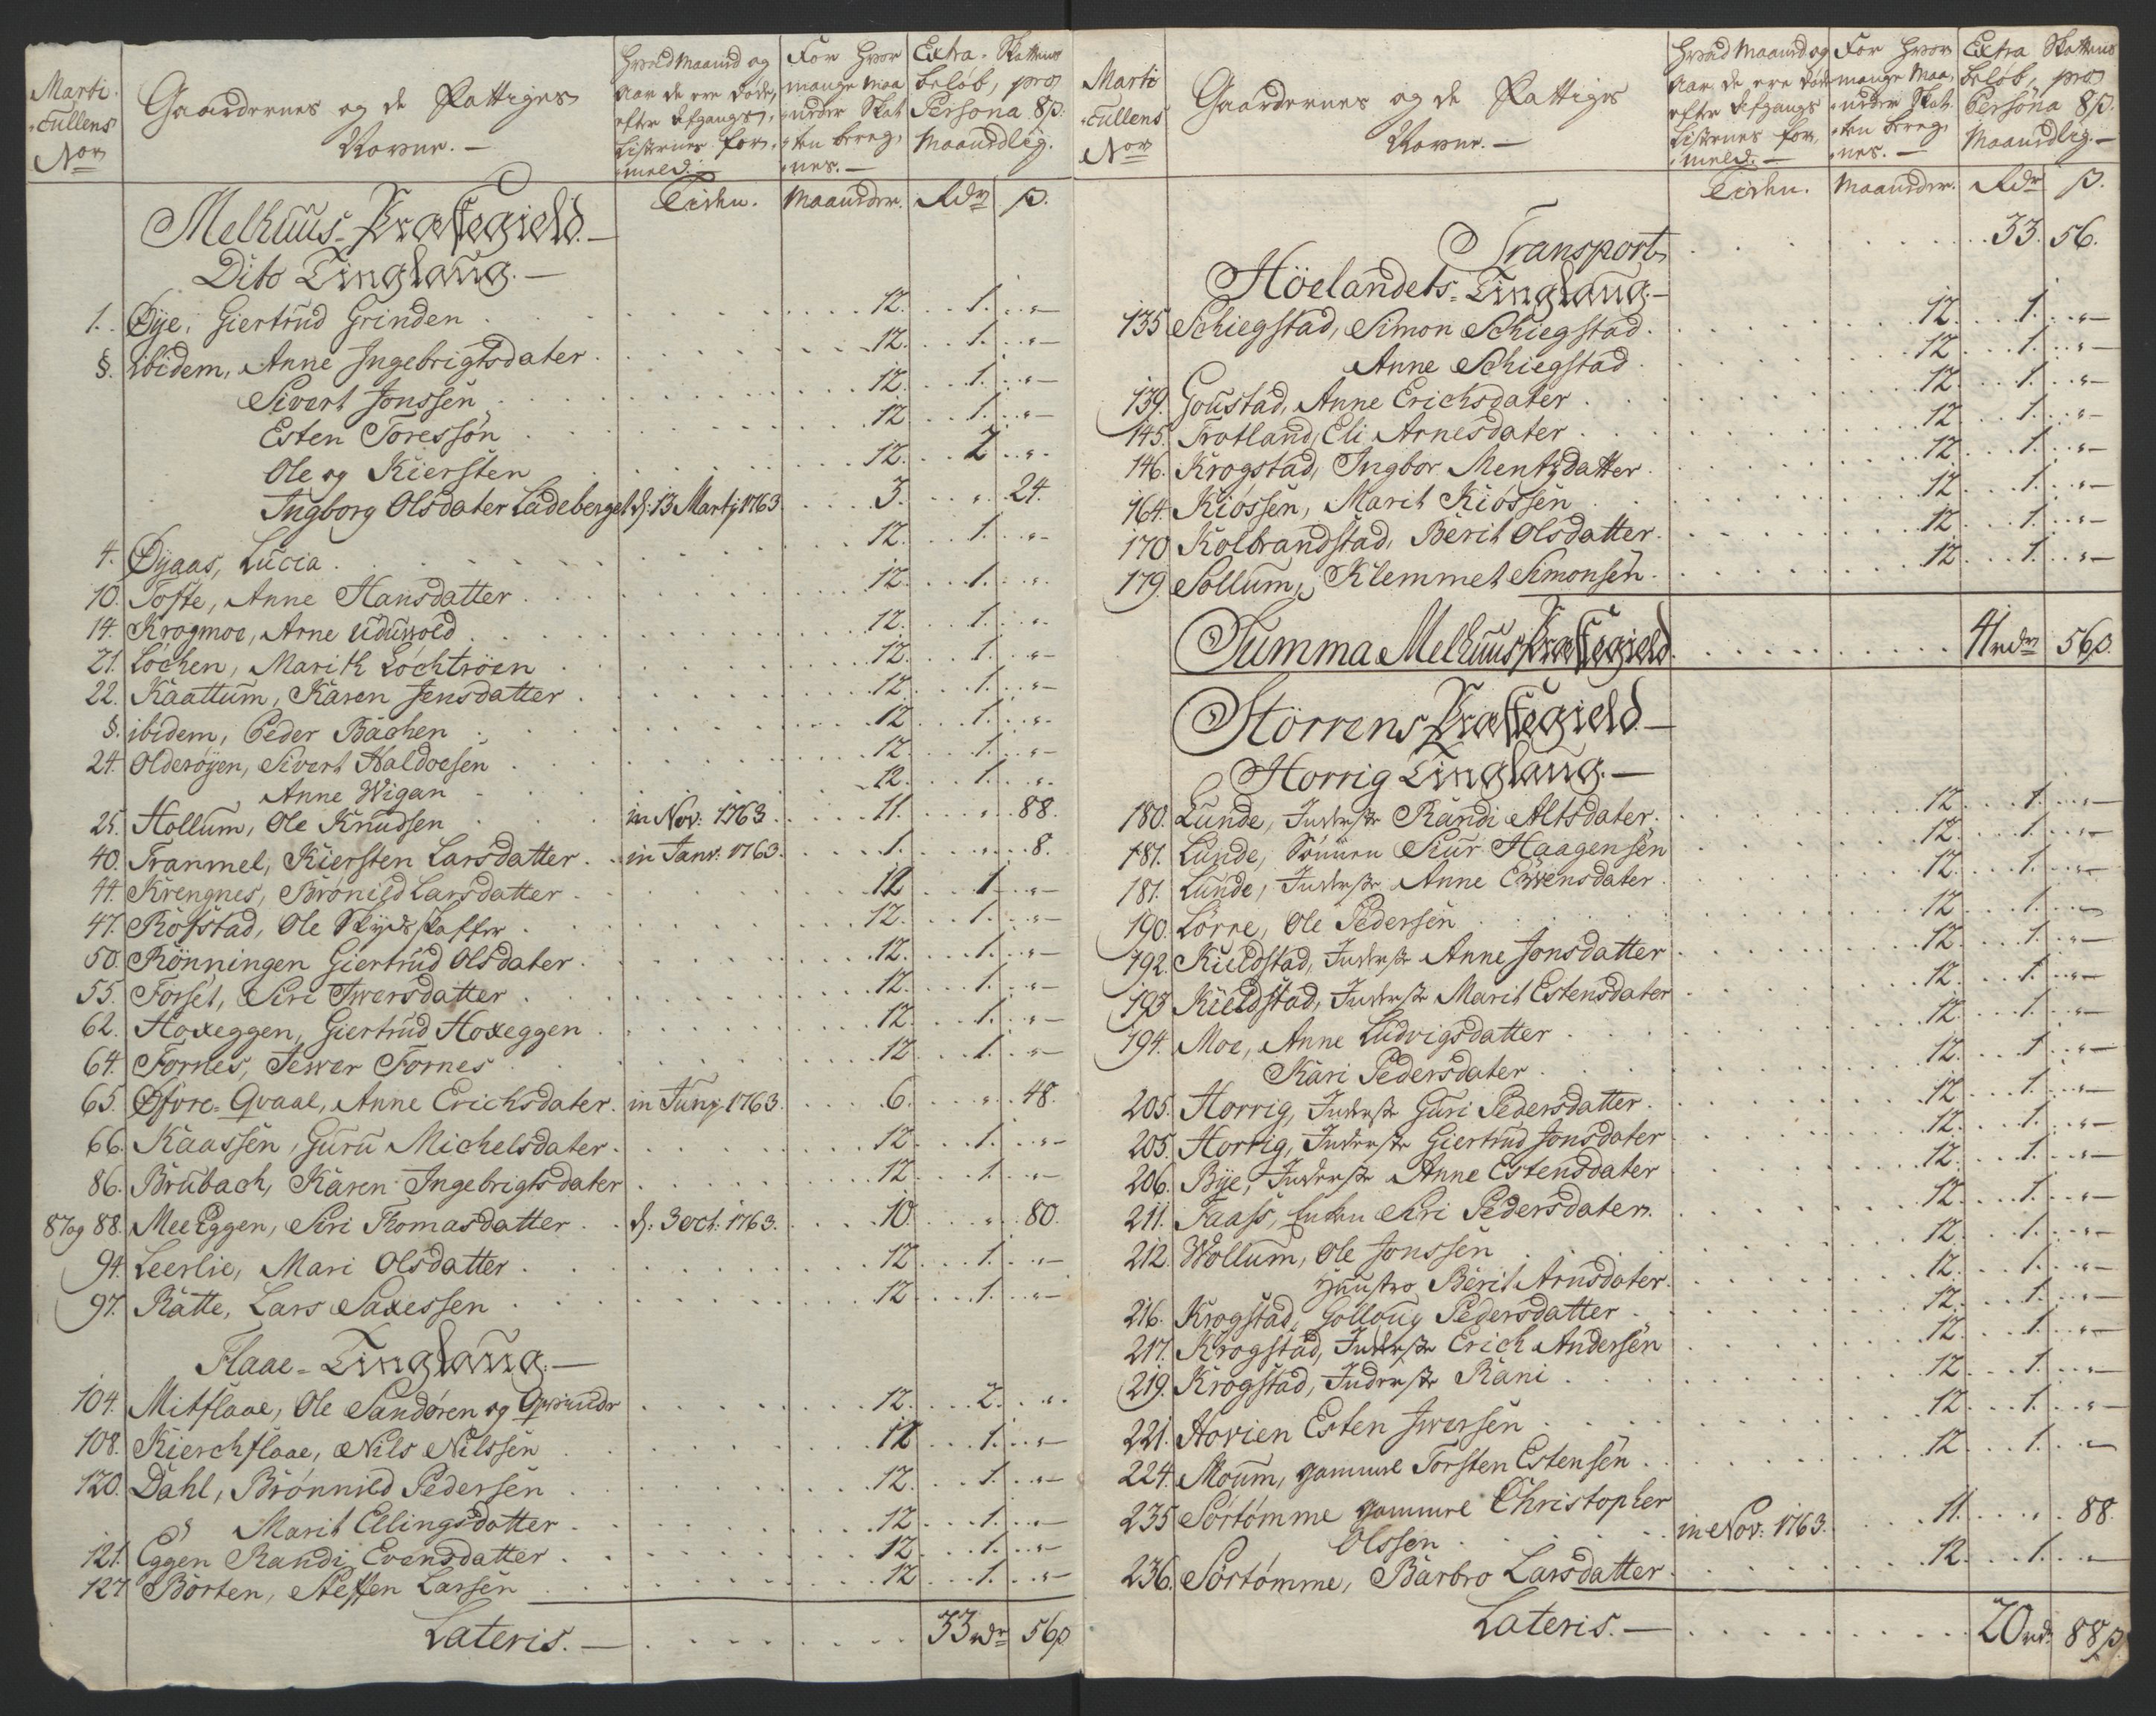 Marti-
cullens
Nor
Gaardernes og de Fattiges
Navne. —
Hvad Maaned og
Aar de ere døde,
efter Afgangs-
Listernes for-
meld. —
For hvor
mange Maa-
neder Skat-
ten bereg-
nes. —
Extra-Skattens
beløb, pro
Persona 8 β.
Maanedlig.
Tiden. Maaneder. Rdr β.
Melhuus-Præstegield. —
Dito Tinglaug. —
1. Øye, Giertrud Grinden 12. 1. „ —
§. ibidem, Anne Ingebrigtsdater 12. 1. „ —
Sivert Jonssen 12. 1. „ —
Esten Toressøn 12. 1. „ —
Ole og Kiersten 12. 2 „ .
Ingborg Olsdater Ladeberget d: 13 Martj 1763. 3. „ 24.
4. Øyaas, Lucia 12. 1. „ —
10. Tofte, Anne Hansdatter 12. 1. „ .
14. Krogmoe, Arne Uduvold 12. 1. „ .
21. Løchen, Marith Lochtrøen 12. 1. „ —
22. Kaattum, Karen Jensdatter 12. 1. „ —
§. ibidem, Peder Bachen 12. 1. „ .
24. Olderøyen, Sivert Haldoesen 12. 1. „ —
Anne Wigan 12. 1. „ .
25. Hollum, Ole Knudsen in Nov: 1763. 11. „ 88.
40. Tranmel, Kiersten Larsdatter in Janv: 1763. 1. „ 8.
44. Krengnes, Brønild Larsdatter 12 1 „ —
47. Rofstad, Ole Skydsskaffer 12. 1. „ —
50. Rönningen Giertrud Olsdater 12. 1. „ —
55. Forset, Siri Iwersdatter 12. 1. „ —
62. Hoxeggen, Giertrud Hoxeggen 12. 1. „ —
64. Fornes, Iewer Fornes 12 1. „ —
65. Øfvre-Qvaal, Anne Erichsdater in Junj 1763. 6. „ 48.
66. Kaassen, Guru Michelsdater 12 1. „ —
86. Brubach, Karen Ingebrigtsdater 12 1. „ —
87 og 88. Mee Eggen, Siri Thomasdatter d: 3 Oct: 1763. 10. „ 80.
94. Leerlie, Mari Olsdatter 12 1. „ —
97. Ratte, Lars Saxessen 12 1. „ —
Flaae-Tinglaug. —
104. Mitflaae, Ole Sandøren og 12. 2. „ .
108. Kierchflaae, Nils Nilssen 12 1. „ —
120. Dahl, Brønnild Pedersen 12. 1. „ —
Marit Ellingsdatter 12 1. „ —
121. Eggen Randi Evensdatter 12 1. „ —
127 Börten, Steffen Larsen 12 1. „ —
Lateris. — 33 rdr 56 β
Marti-
cullens
Nor
Gaardernes og de Fattiges
Navne. —
Hvad Maaned og
Aar de ere døde
efter Afgangs
Listernes for-
meld. —
For hvor
mange Maa-
neder Skat-
ten bereg-
nes. —
Extra Skattens
beløb, pro
Persona 8 β.
Maanedlig. —
Tiden. Maaneder. Rdr β.
Transport 33. 56.
Höelandets-Tinglaug. —
135 Schiegstad, Simon Schiegstad 12 1. „ —
Anne Schiegstad 12 1. „ —
139. Goustad, Anne Erichsdater 12 1. „ —
145. Trotland, Eli Arnesdater 12 1. „ —
146. Krogstad, Ingbor Mentzdatter 12. 1. „ —
164. Kiossen, Marit Kiossen 12 1. „ —
170 Kolbrandstad, Berit Olsdatter 12 1. „ —
179 Sollum, Klemmet Simonsen 12 1. „ —
Summa Melhuus Præstegield. 41 rdr 56 β.
Störrens Præstegield —
Horrig Tinglaug. —
180. Lunde, Inderste Randi Altsdater 12 1. „ —
181. Lunde, Siur Haagensen 12. 1. „ —
181. Lunde, Inderste Anne Ewensdater 12. 1. „ —
190. Lorre, Ole Pedersen 12 1. „ —
192. Kieldstad, Inderste Anne Jonsdatter 12. 1. „ —
193 Kieldstad, Inderste Marit Estensdater 12. 1. „ —
194. Moe, Anne Ludvigsdatter 12 1. „ —
Kari Pedersdater 12. 1 „ —
205. Horrig, Inderste Guri Pedersdatter 12 1. „ —
205. Horrig, Inderste Giertrud Jonsdater 12. 1. „ —
206. Bye, Inderste Anne Estensdater 12. 1. „ —
211. Faass, Enken Siri Pedersdater 12. 1. „ —
212. Wollum, Ole Jonssen 12 1. „ —
Huustro Berit Arnsdater 12. 1. „ —
216. Krogstad, Gollaug Pedersdatter 12. 1. „ —
217. Krogstad, Inderste Erich Andersen 12 1. „ —
219. Krogstad, Inderste Rani 12. 1. „ —
221. Hovien Esten Iwersen 12 1. „ —
224. Moum, gammel Torsten Estensen 12 1. „ —
235 Sortømme gammel Christopher
Olssen in Nov: 1763. 11. „ 88.
236. Sortømme, Barbro Larsdatter 12. 1. „ —
Lateris. — 20 rd. 88 β.